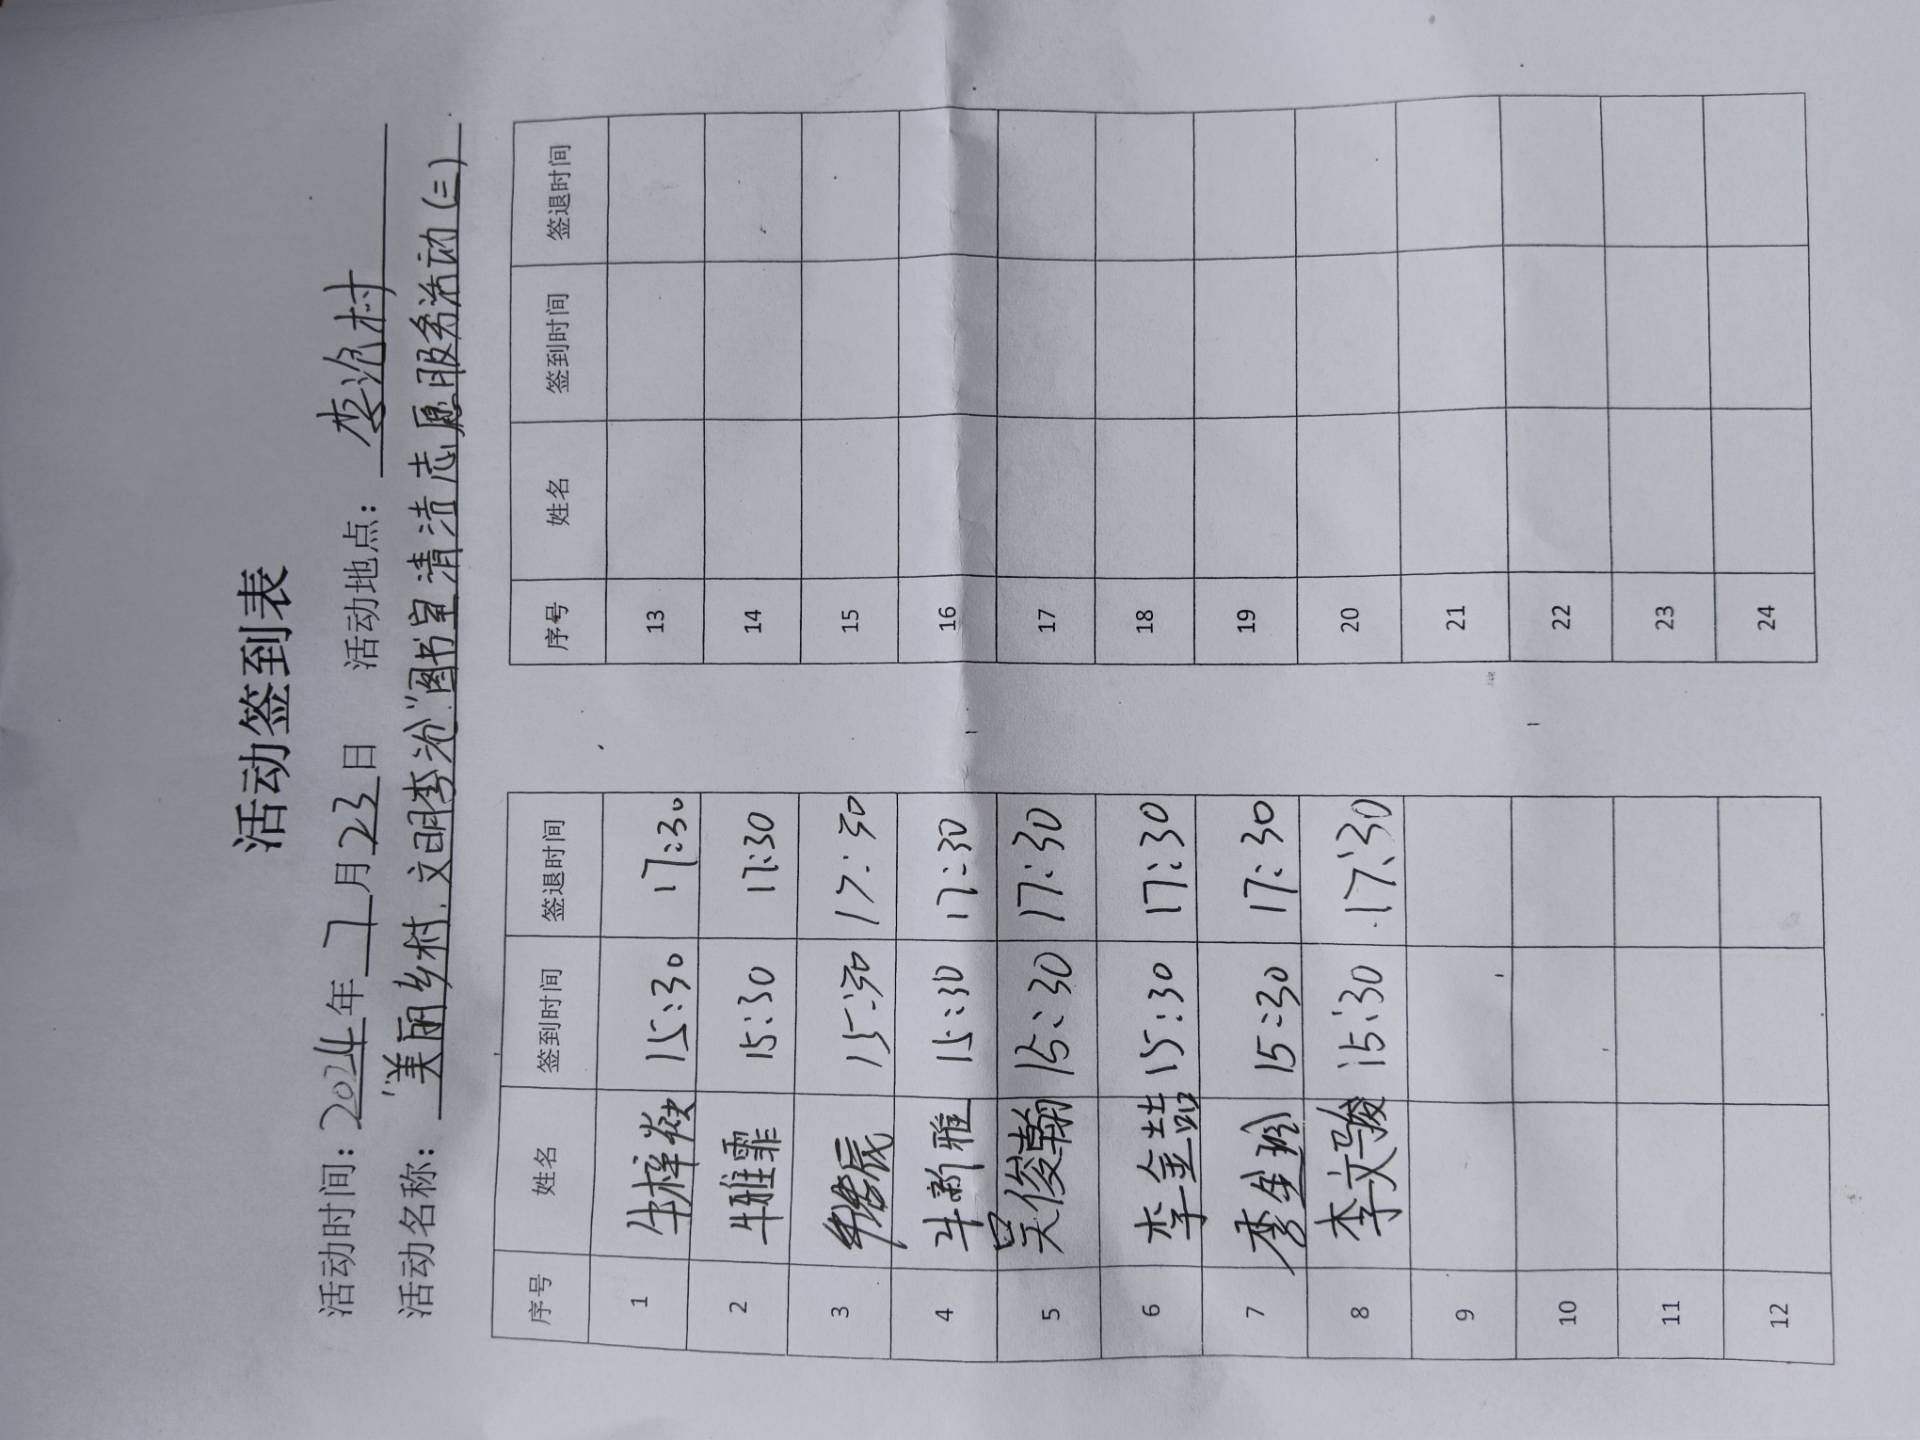 活动签到表
活动时间：2024年7月23日 活动地点：李沧村
活动名称："美丽乡村，文明李沧"图书室清洁志愿服务活动（三）
序号 姓名 签到时间 签退时间 序号 姓名 签到时间 签退时间
1 牛梓焱 15:30 17:30 13
2 牛雅霏 15:30 17:30 14
3 15:30 17:30 15
4 牛新雅 15:30 17:30 16
5 吴俊翰 15:30 17:30 17
6 李金喆 15:30 17:30 18
7 李 15:30 17:30 19
8 李文骏 15:30 17:30 20
9 21
10 22
11 23
12 24